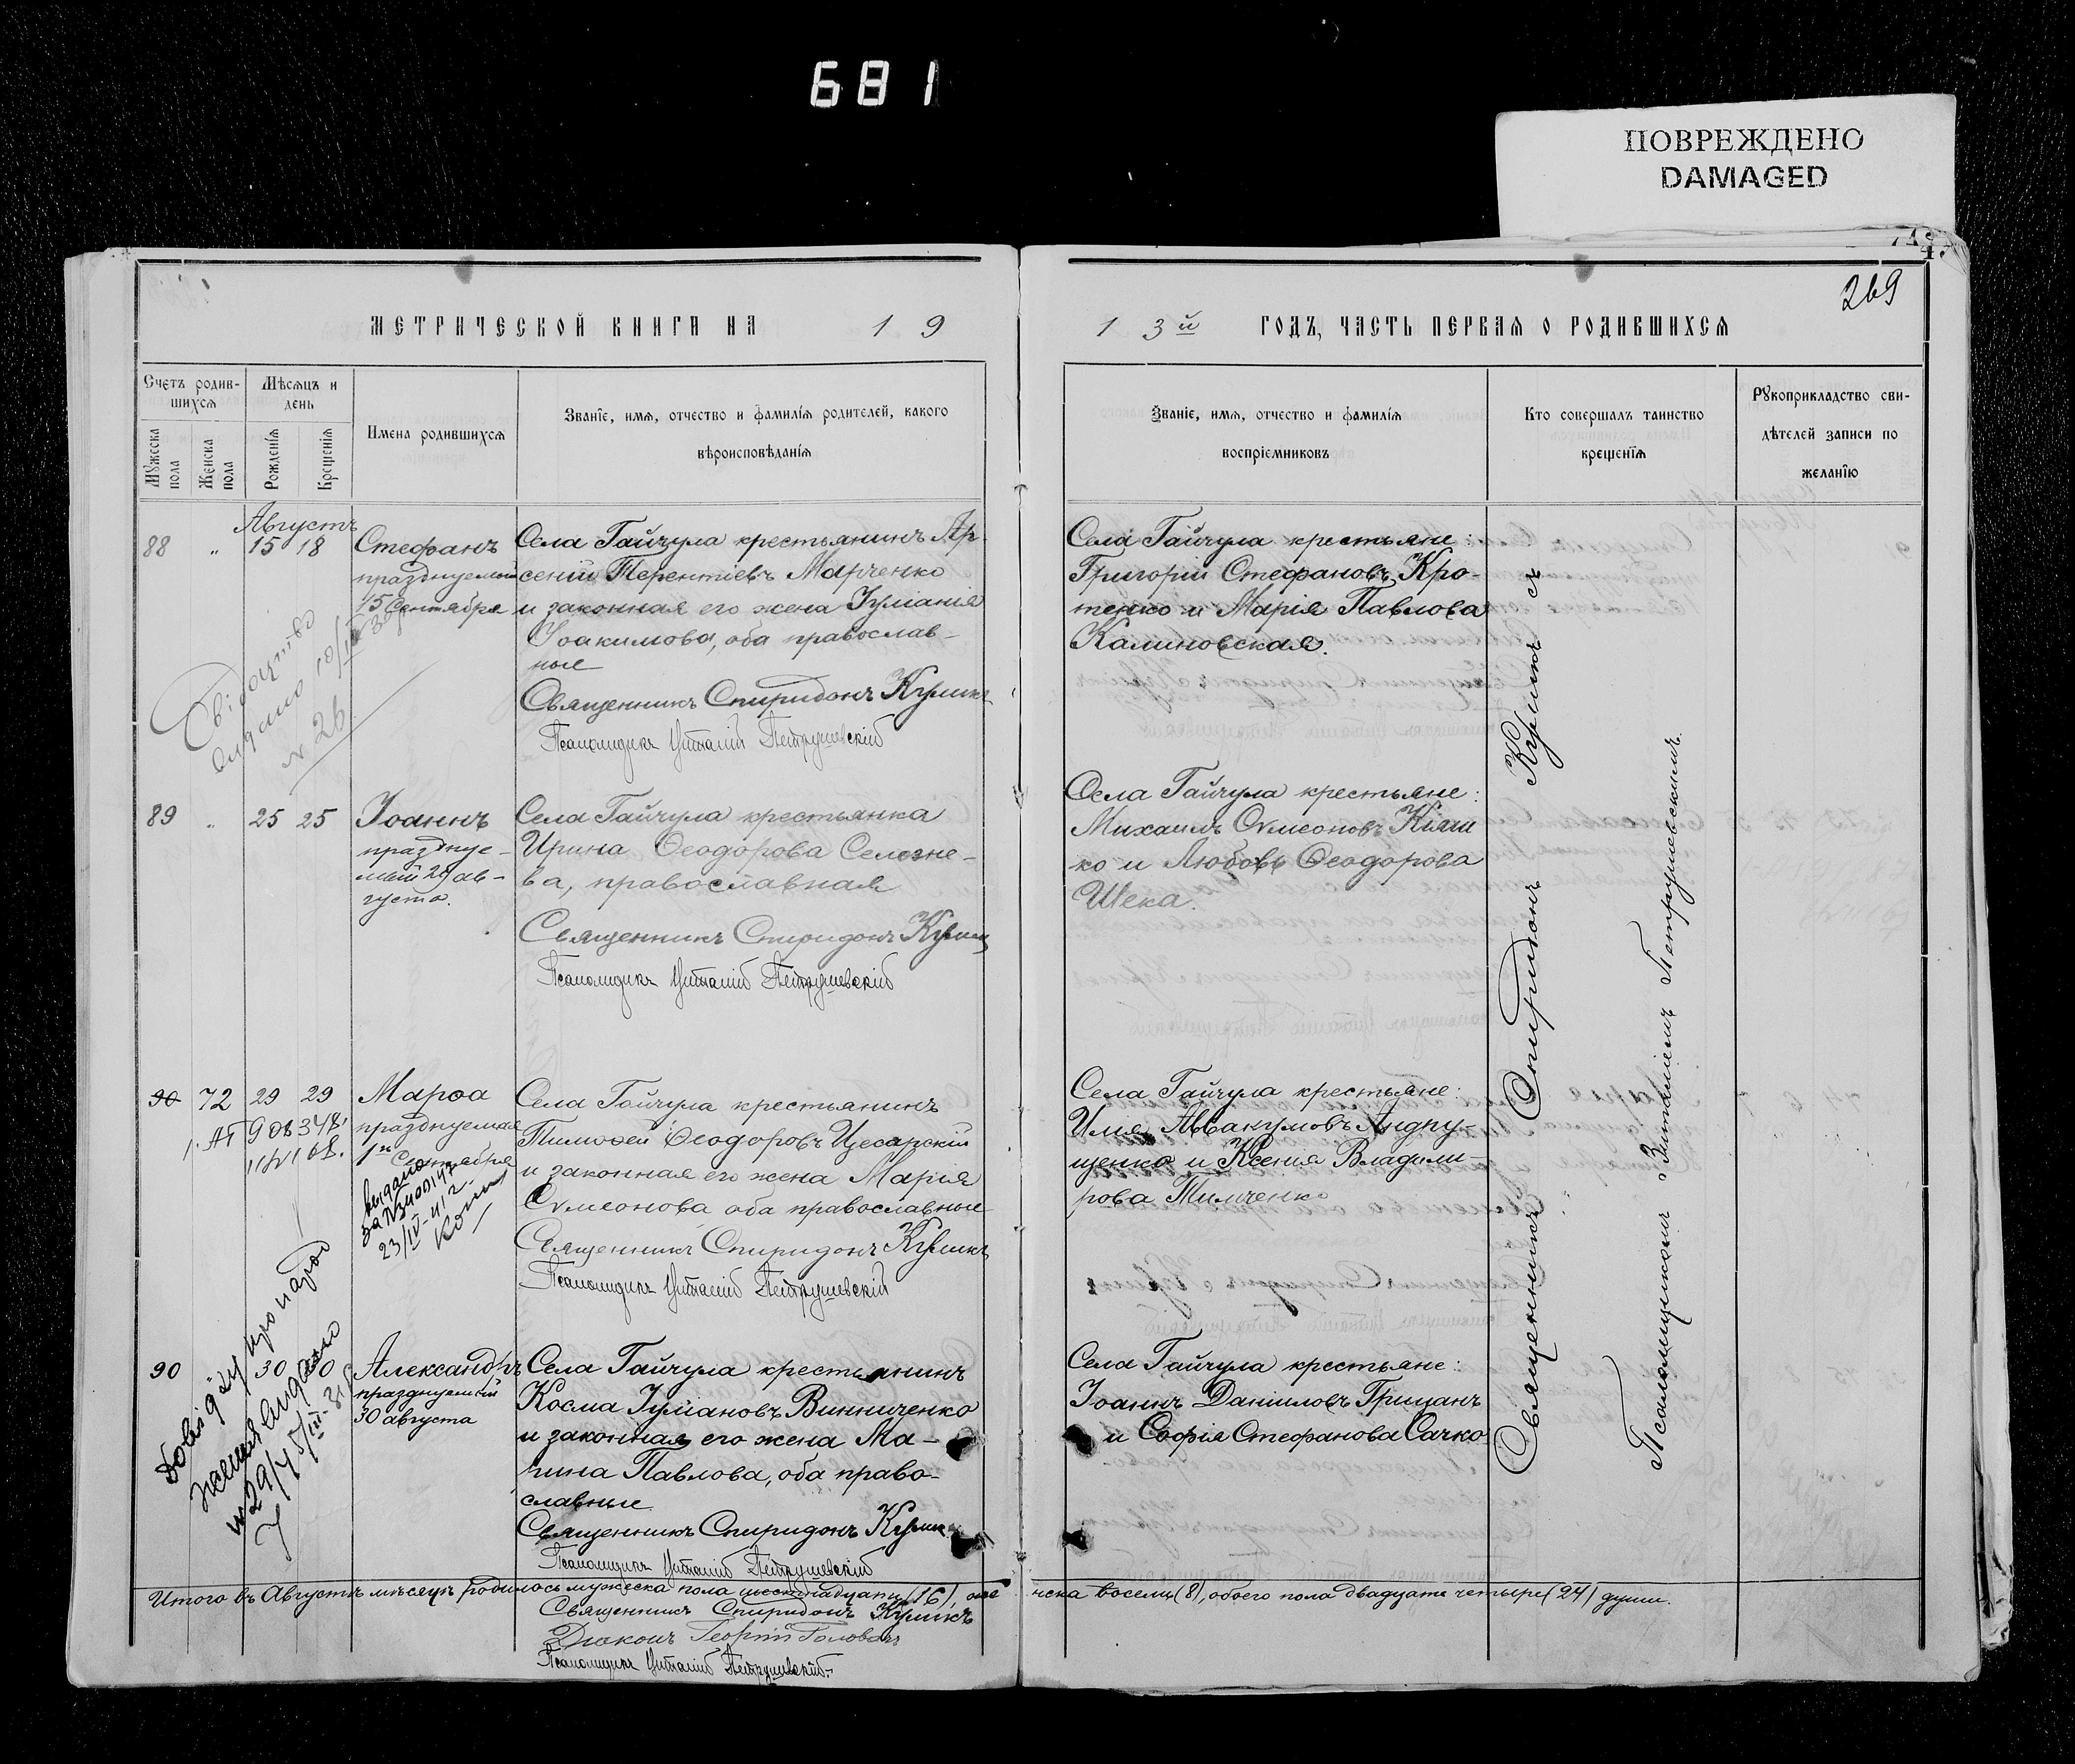 681
ПОВРЕЖДЕНО
DAMAGED
269
МЕТРИЧЕСКОЙ КНИГИ НА 19
13й ГОДЪ, ЧАСТЬ ПЕРВАЯ О РОДИВШИХСЯ
Счетъ родив-
шихся
Мужеска
пола
Женска
пола
Мѣсяцъ и
день
Рожденія
Крещенія
Имена родившихся
Званіе, имя, отчество и фамилія родителей, какого
вѣроисповѣданія
Званіе, имя, отчество и фамилія
воспріемниковъ
Кто совершалъ таинство
крещенія
Рукоприкладство сви-
дѣтелей записи по
желанію
Августъ
88 " 15 18
Стефанъ
празднуемый
15 Сентября
Села Гайчула крестьянинъ Ар-
сеній Терентіевъ Марченко
и законная его жена Іуліанія
Іоакимова, оба православ-
ные
Священникъ Спиридонъ Куликъ
Псаломщикъ Виталій Петрушевскій
Села Гайчула крестьяне:
Григорій Стефановъ Кро-
тенко и Марія Павлова
Калиновская.
Свідоцтво
видано
№ 26
89 " 25 25
Іоаннъ
празднуе-
мый 29 ав-
густа.
Села Гайчула крестьянка
Ирина Ѳеодорова Селезне-
ва, православная
Священникъ Спиридонъ Куликъ
Псаломщикъ Виталій Петрушевскій
Села Гайчула крестьяне:
Михаилъ Сѵмеоновъ Кіяш
ко и Любовь Ѳеодорова
Шека.
90 72 29 29
Марѳа
празднуемая
1го Сентября
Села Гайчула крестьянинъ
Тимоѳей Ѳеодоровъ Цесарскій
и законная его жена Марія
Сѵмеонова оба православные
Священникъ Спиридонъ Куликъ
Псаломщикъ Виталій Петрушевскій
Села Гайчула крестьяне:
Илія Аввакумовъ Андру-
щенко и Ксенія Владими-
рова Тимченко
23/IV-41 г.
Довідку про народ
ження видано
90 30 30
Александръ
празднуемый
30 августа
Села Гайчула крестьянинъ
Косма Іуліановъ Винниченко
и законная его жена Ма-
рина Павлова, оба право-
славные
Священникъ Спиридонъ Куликъ
Псаломщикъ Виталій Петрушевскій
Села Гайчула крестьяне:
Іоаннъ Даніиловъ Грицанъ
и Софія Стефанова Сачко
Священникъ Спиридонъ Куликъ съ
Псаломщикомъ Виталіемъ Петрушевскимъ.
Итого въ Августѣ мѣсяцѣ родилось мужеска пола шестнадцать (16), же нска восемь (8), обоего пола двадцать четыре (24) души.
Священникъ Спиридонъ Куликъ
Діаконъ Георгій Головань
Псаломщикъ Виталій Петрушевскій.